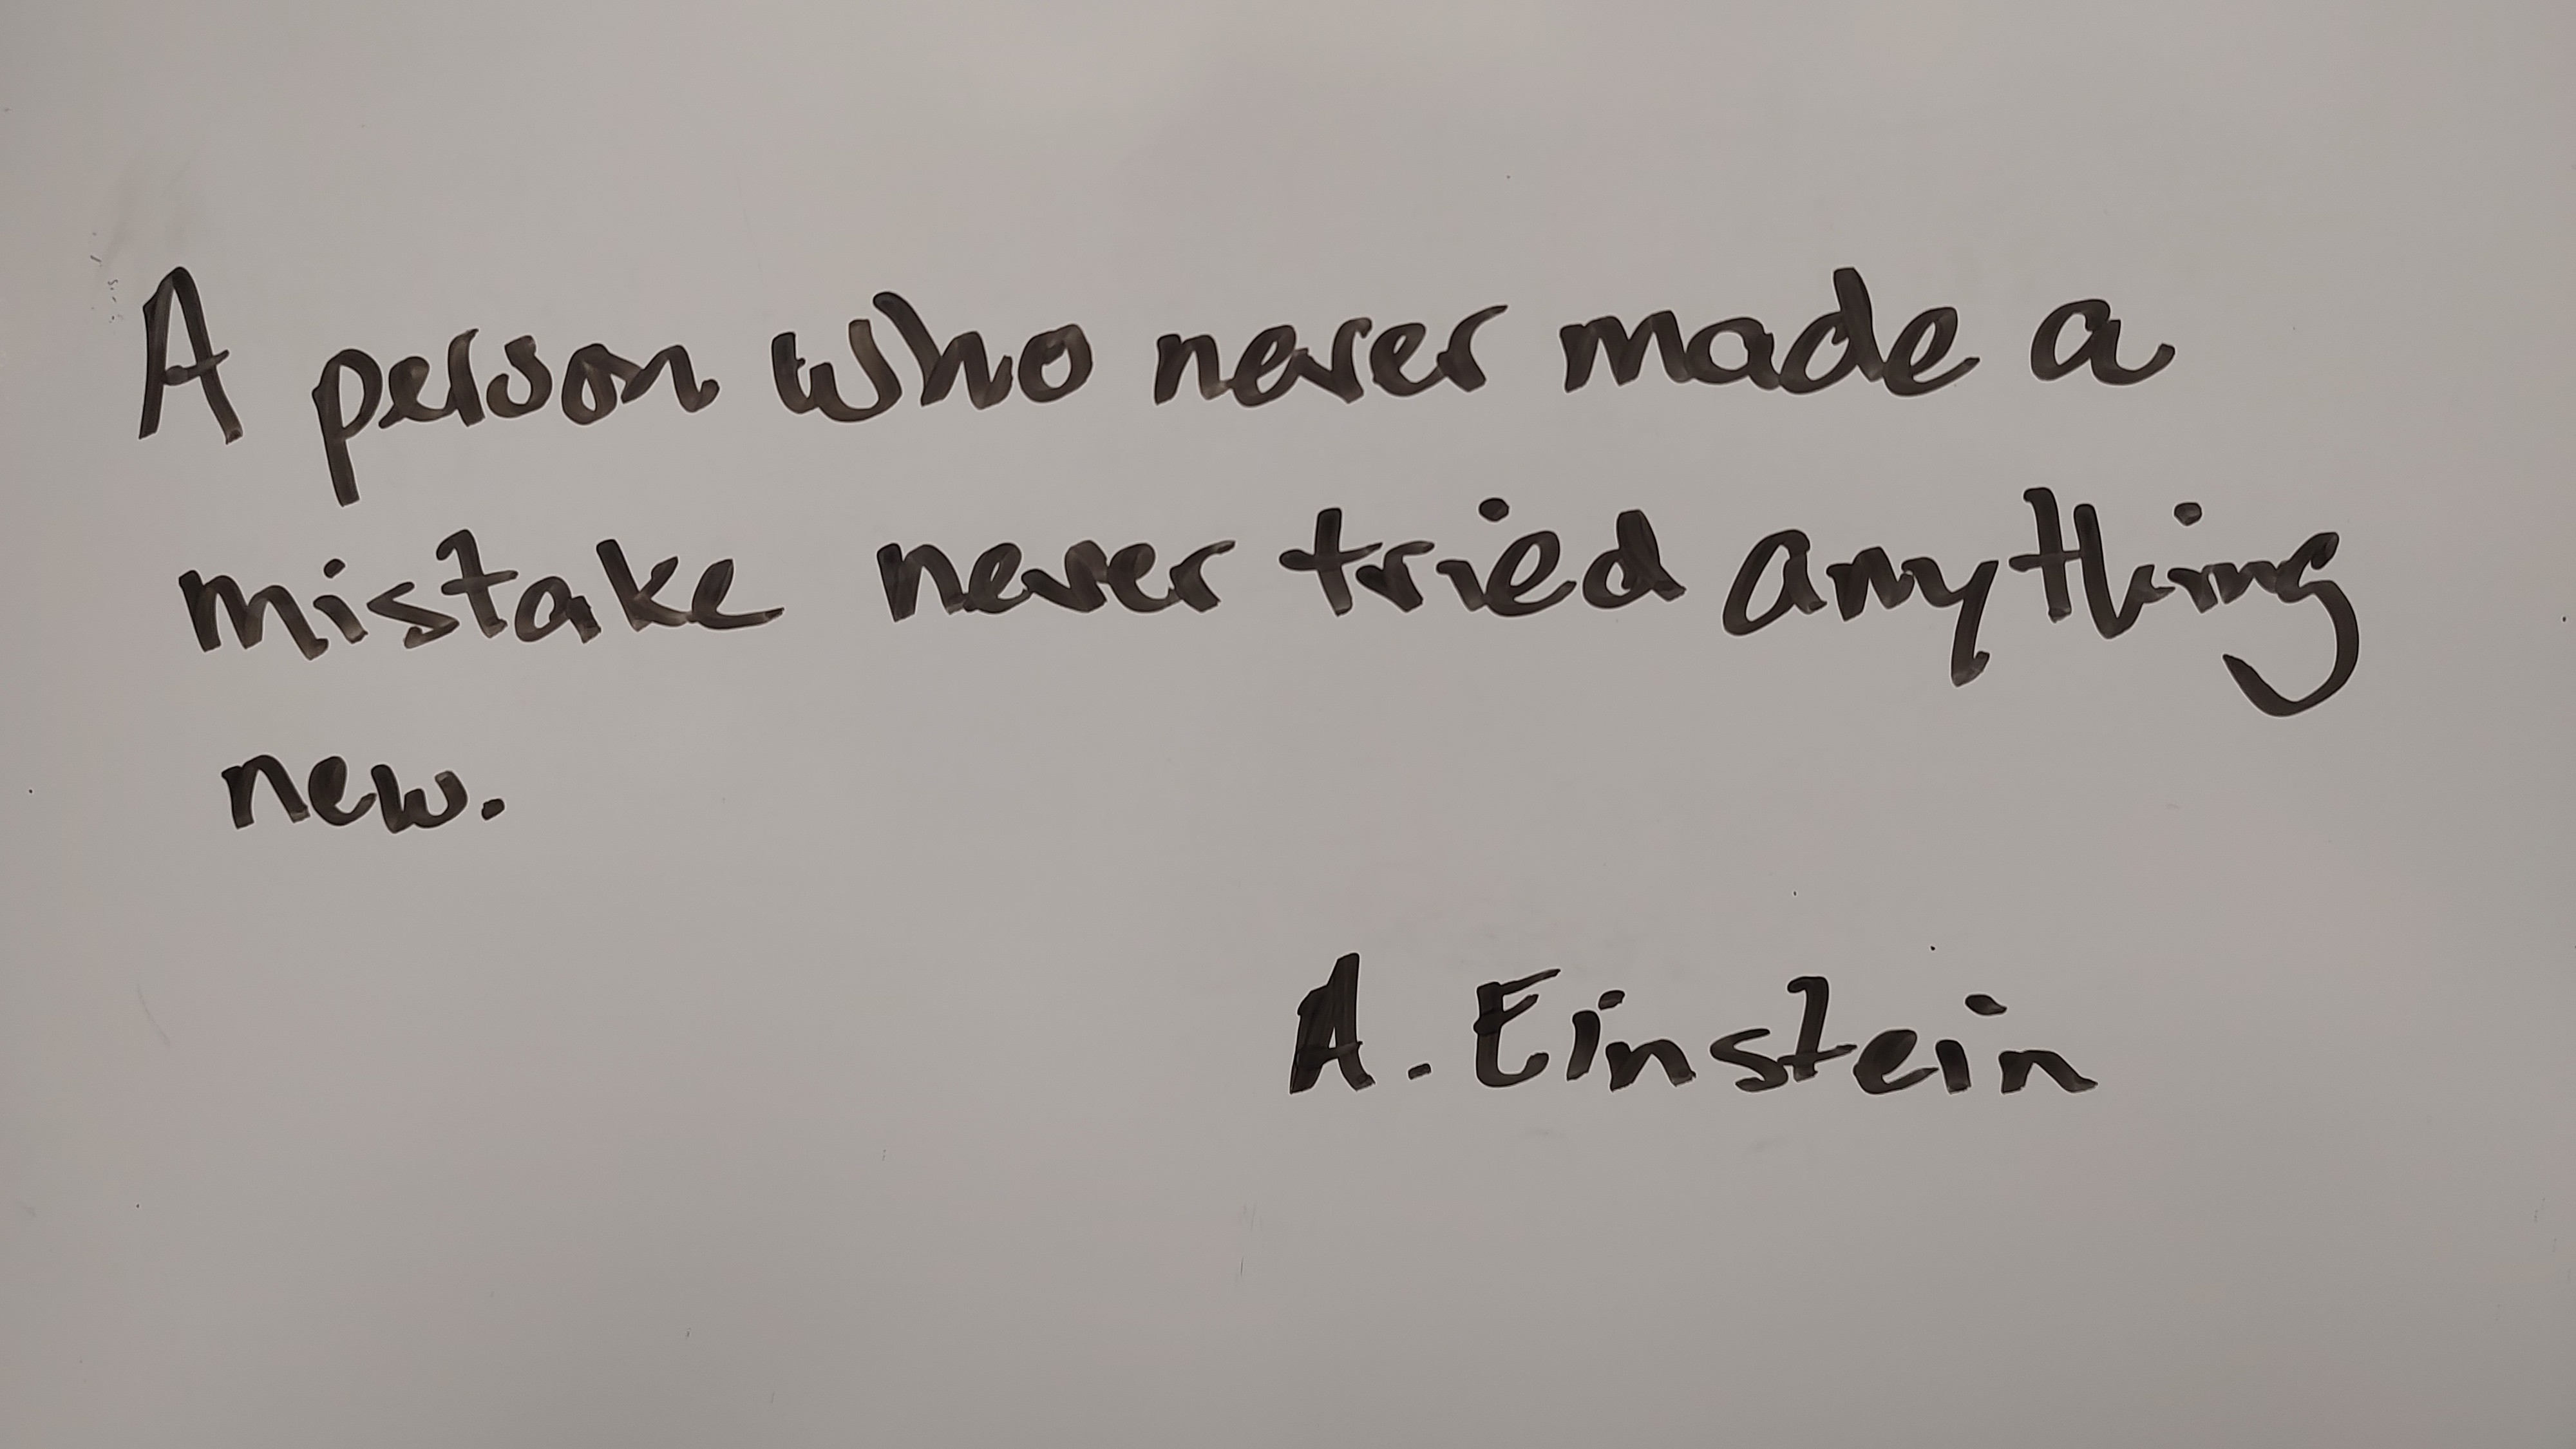 A person who never made a
mistake never tried anything
new.
A. Einstein